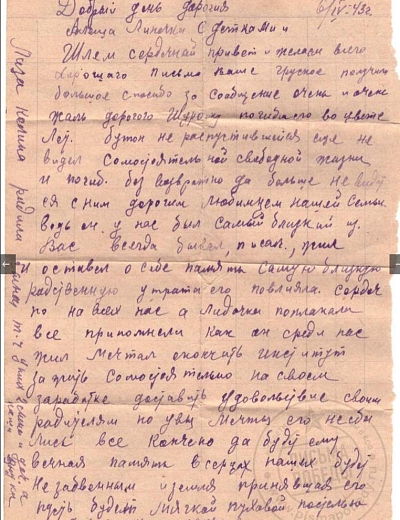 Добрый день дорогия 6/IV-43г.
Линочка с детками
Шлем сердечный привет и желаем всего
хорошаго письмо ваше грусное получили
большое спасибо за сообщение очень и очень
жаль дорогого Шурочку погибшего во цвете
лет. бутон не распустившийся еще не
видел самостоятельной свободной жизни
и погиб. безвозвратно да больше не
ся с ним дорогим любимцем нашей семьи
ведь он у нас был самый близкий у
Вас всегда бывал, писал, жил
и оставел о себе память самую близкую
родственную утрата его повлияла. сердеч
но на всех нас а Лидочка поплакали
все припомнели как он среди нас
жил мечтал окончить институт
зажить самостоятельно на своем
заработке доставить удовольствие своим
родителям но увы мечты его не сбы
лись все кончено да будет ему
вечная память в сердцах наших будет
незабвенным и земля принявшая его
пусть будет мягкой пуховой постелью
Лиза родила